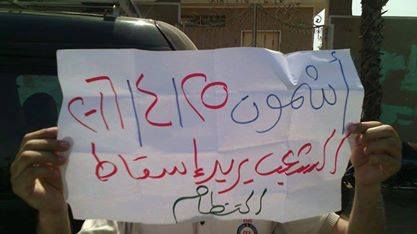 أشمون ٢٥/٤/٢٠١١
الشعب يريد إسقاط
النظام